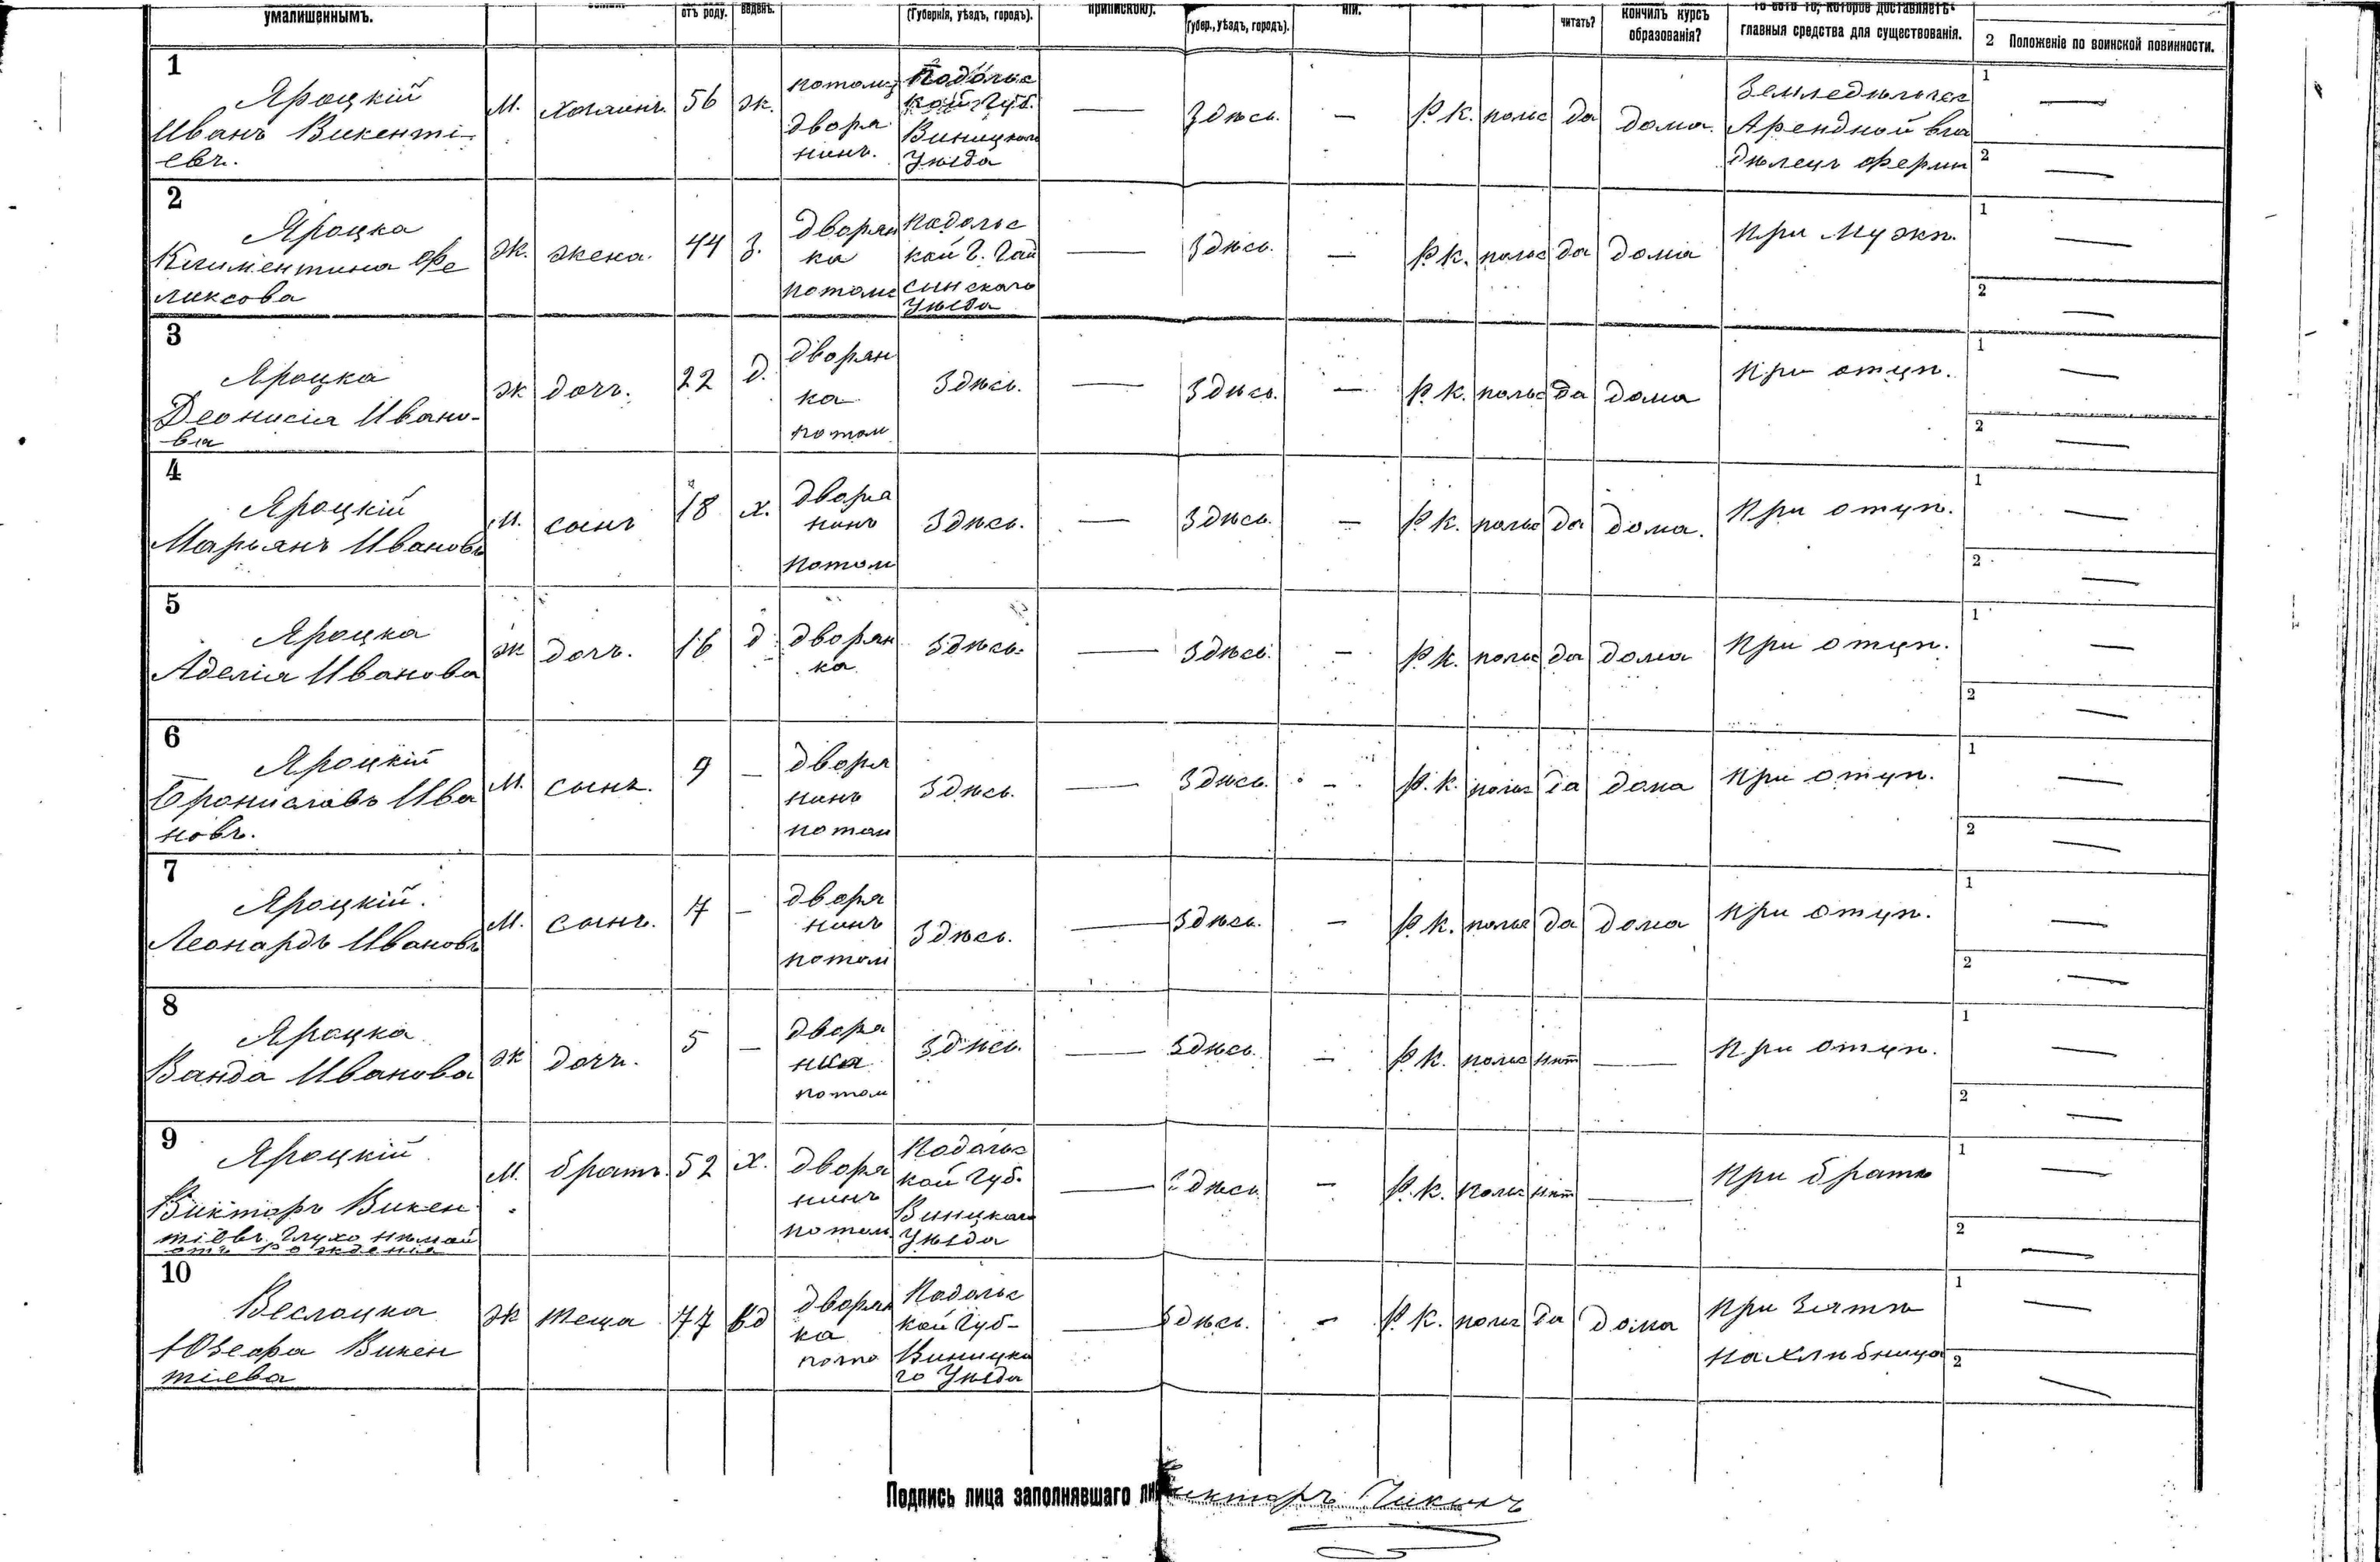 умалишеннымъ. отъ роду. веденъ. (Губернія, уѣздъ, городъ). припискою). Губер., уѣздъ, городъ). ніи. читать? кончилъ курсъ образованія? главныя средства для существованія. 2 Положеніе по воинской повинности.
1
Яроцкій
Иванъ Викенті-
евъ.
М. хозяинъ. 56 ж.
потомс
дворя
нинъ.
Подольс
кой Губ.
Виницкаго
Уѣзда
— Здѣсь. — Р.К. польс да дома.
Земледѣлъчес
Арендной вла
дѣлецъ фермы
1 —
2 —
2
Яроцка
Климентина Фе
ликсова
ж. жена. 44 з.
дворян
ка
потомс
Подольс
кой Г. Гай
сынскаго
Уѣзда
— Здѣсь. — Р.К. польс да дома При мужѣ.
1 —
2 —
3
Яроцка
Деонисія Ивано-
ва
ж дочь. 22 д.
дворян
ка
потом
Здѣсь. — Здѣсь. — Р.К. польс да дома При отцѣ.
1 —
2 —
4
Яроцкій
Марьянъ Ивановъ
М. сынъ 18 х.
дворя
нинъ
потом
Здѣсь. — Здѣсь. — Р.К. польс да дома. При отцѣ.
1 —
2 —
5
Яроцка
Аделія Иванова
ж дочь. 16 д
дворян
ка
Здѣсь. — Здѣсь. — Р.К. польс да дома При отцѣ.
1 —
2 —
6
Яроцкій
Брониславъ Ива
новъ.
М. сынъ. 9 —
дворя
нинъ
потом
Здѣсь. — Здѣсь. — Р.К. польс да дома При отцѣ.
1 —
2 —
7
Яроцкій.
Леонардъ Ивановъ
М. сынъ. 7 —
дворя
нинъ
потом
Здѣсь. — Здѣсь. — Р.К. польс да дома При отцѣ.
1 —
2 —
8
Яроцка
Ванда Иванова
ж дочь. 5 —
дворя
нка
потом
Здѣсь. — Здѣсь. — Р.К. польс нѣт — При отцѣ.
1 —
2 —
9
Яроцкій
Викторъ Викен
тіевъ. Глухо нѣмой
отъ рожденія
М. братъ. 52 х.
дворя
нинъ
потом
Подольс
кой Губ.
Виницкаго
Уѣзда
— Здѣсь. — Р.К. польс нѣт — При братѣ
1 —
2 —
10
Веслоцка
Юзефа Викен
тіева
ж теща 77 вд
дворян
ка
пото
Подольс
кой Губ-
Виницка
го Уѣзда
— Здѣсь. — Р.К. польс да дома
При Зятѣ
нахлѣбница
1 —
2 —
Подпись лица заполнявшаго ли